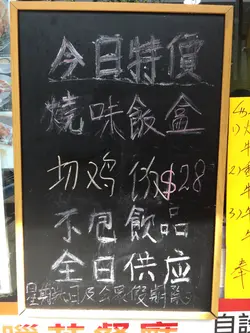 今日特價
燒味飯盒
切鸡$28
不包飲品
全日供应
星期日及公眾假期
餐廳
自
奉